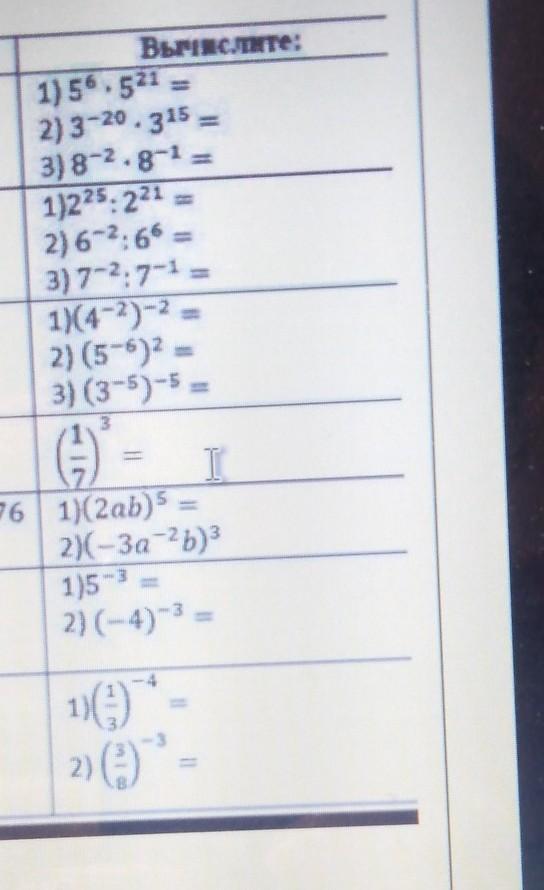 Вычислите:
1) 5⁶ · 5²¹ =
2) 3⁻²⁰ · 3¹⁵ =
3) 8⁻² · 8⁻¹ =
1)2²⁵: 2²¹ =
2) 6⁻²: 6⁶ =
3) 7⁻²: 7⁻¹ =
1)(4⁻²)⁻² =
2) (5⁻⁶)² =
3) (3⁻⁵)⁻⁵ =
(1/7)³ =
76 1)(2ab)⁵ =
2)(−3a⁻²b)³
1)5⁻³ =
2) (−4)⁻³ =
1)(1/3)⁻⁴ =
2) (3/8)⁻³ =